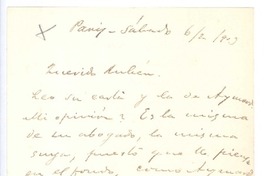 Paris - Sábado 6/2/913
Querido Rubén:
Leo su carta y la de Aymard
Mi opinión? Es la misma
de un abogado, la misma
suya, puesto que Ud. piensa
en el fondo, como Aymard